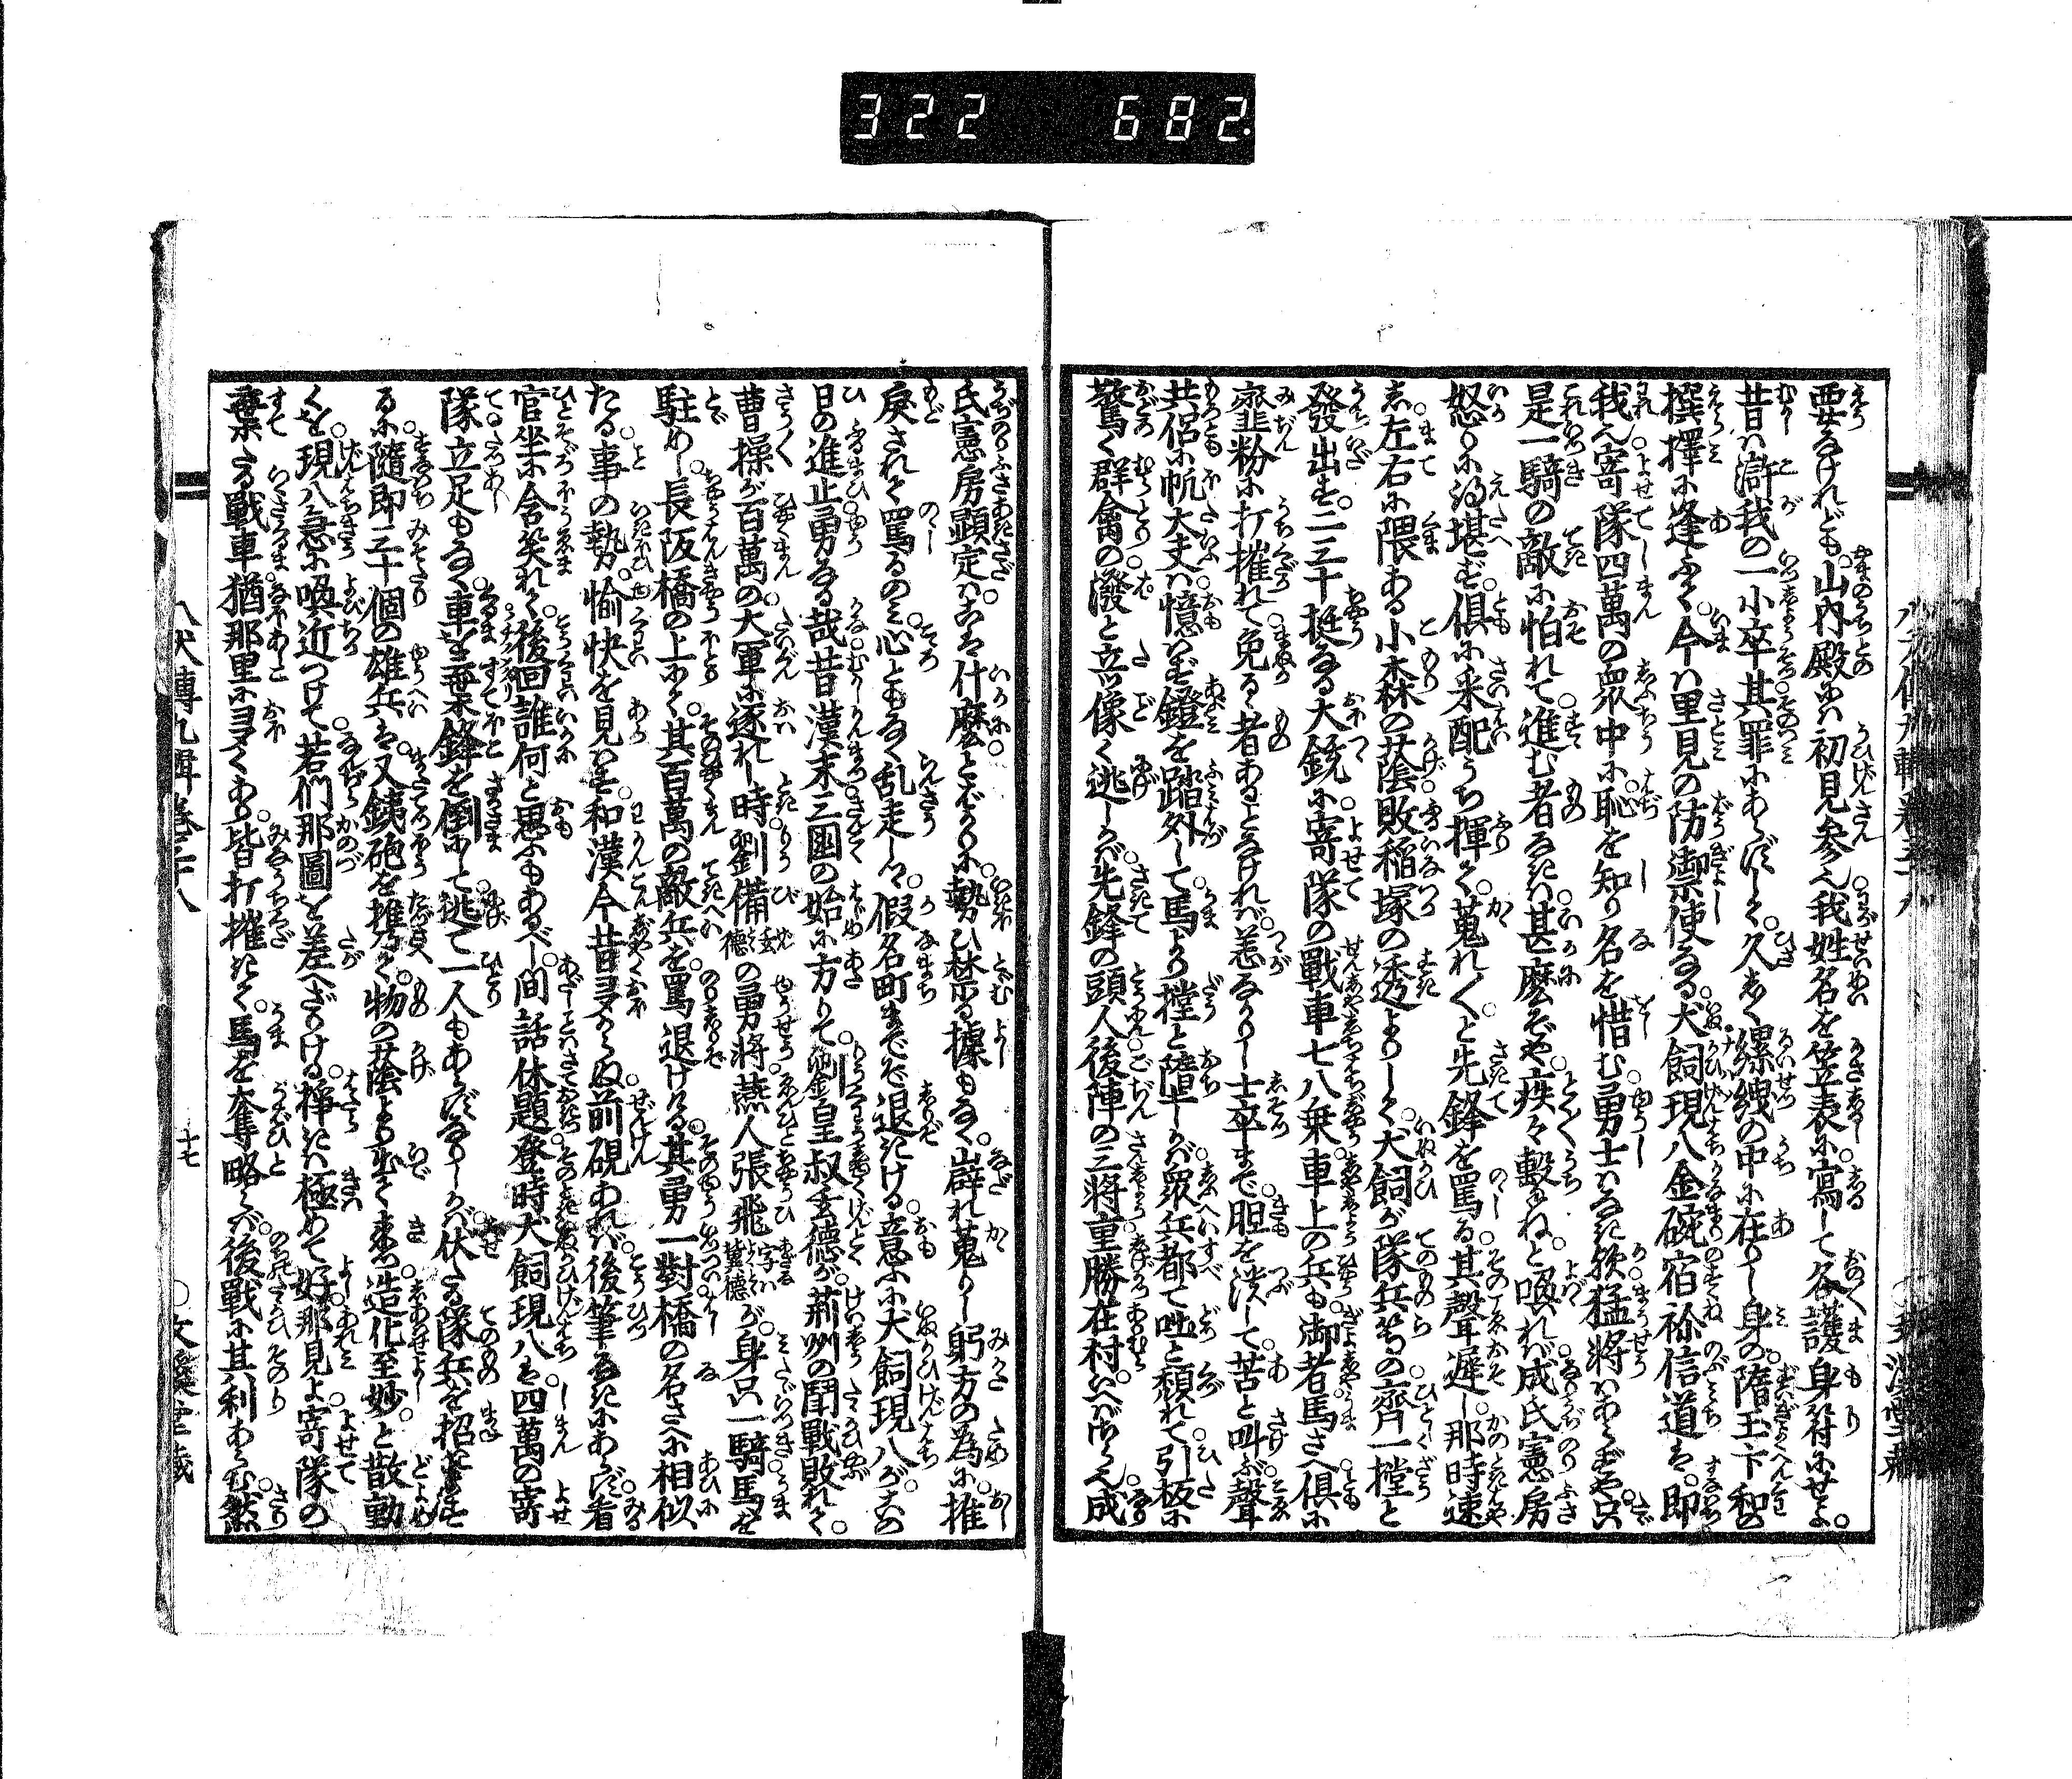 322 682
要なけれども。山内殿には初見参。我姓名を笠表に寫して各護身符にせよ。
昔は滸我の一小卒其罪にあらずして。久しく縲絏の中に在りし身の。隋玉卞和の
撰擇に逢ふて。今は里見の防禦使なる。犬飼現八金碗宿祢信道は。即
我へ寄隊四萬の衆中に。恥を知り名を惜む。勇士はなきか猛将はあらずや。只
是一騎の敵に怕れて。進む者なきは甚麼ぞや。疾々轂ねと喚れば。成氏憲房
怒りに得堪ず。倶に采配うち揮て。蒐れ〱と先鋒を罵る。其聲遲し那時速
し。左右に隈ある小森の蔭。敗稲塚の透よりして。犬飼が隊兵等の。齊一撞と
發出す。二三十挺なる大銃に。寄隊の戰車七八乗。車上の兵も御者馬さへ。倶に
韲粉に打摧れて。免るゝ者あることなければ。恙なかりし士卒まで。胆を潰して。苦と叫ぶ聲
共侶に。帆大丈は憶はず鐙を踏外して馬より撞と墮しかば。衆兵都て吐と頽れて。引板に
驚く群禽の。潑と立像く逃しかば。先鋒の頭人後陣の三将。重勝在村いへばさら也。成
氏憲房顯定は。こは什麼とばかりに。勢ひ禁る據もなく。辟れ蒐りし躬方の為に。推
戻されて罵るのみ。心ともなく乱走しつ。假名町までぞ退きける。意ふに犬飼現八が。この
日の進止勇なる哉。昔漢末三國の始に方りて。劉皇叔玄德が。荊州の鬪戰敗れて。
曹操が百萬の。大軍に逐れし時。劉備玄德の勇将。燕人張飛字は翼德が。身只一騎馬を
駐めし。長阪橋の上にて。其百萬の敵兵を。罵退けける。其勇一對橋の名さへに相似
たる。事の勢ひ愉快を見はす。和漢今昔多からぬ。前硯あれば後筆なきにあらず。看
官坐に含笑れて。後回誰何と思ふもあるべし。間話休題登時犬飼現八は。四萬の寄
隊立足もなく。車を棄鋒を倒にして逃て。一人もあらずなりしかば。伏たる隊兵を招よする
に。隨即三十個の雄兵は。又銕砲を推乃て。物の蔭より出て来つ。造化至妙。と散動
くを。現八急に喚近つけて。若們那圖を差へざりける。擇は極めて好。那見よ寄隊の
棄たる戰車。猶那里に多くあり。皆打摧きて。馬を奪略らば。後戰に其利あらむ。然
八犬傳九輯卷三十八
十七
文溪堂藏